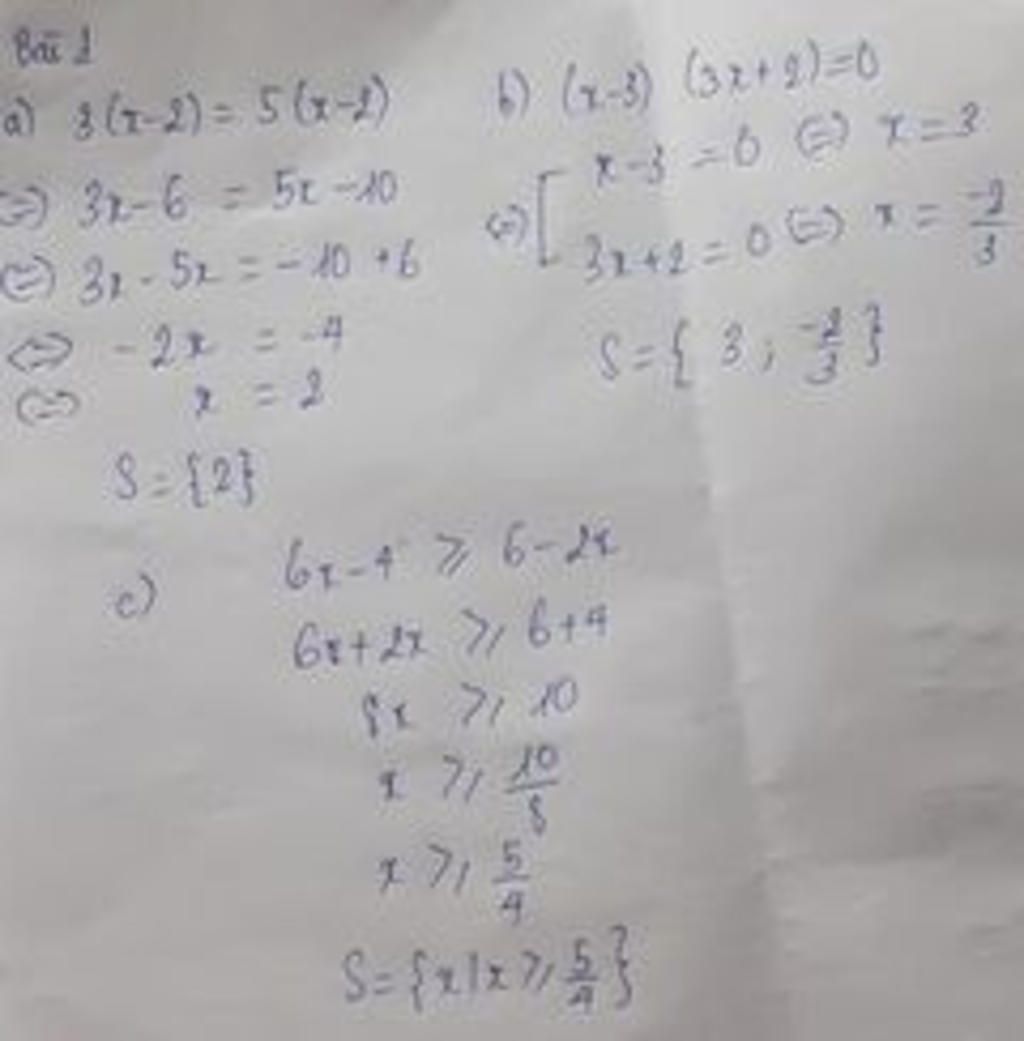 Bài 1
a) 3(x-2) = 5(x-2)
⇔ 3x-6 = 5x-10
⇔ 3x - 5x = -10 +6
⇔ -2x = -4
⇔ x = 2
S = {2}
b) (x-3) (3x+2)=0
⇔ [ x-3 = 0 ⇔ x = 3
3x+2 = 0 ⇔ x = -2/3
S = { 3 ; -2/3 }
c) 6x-4 ⩾ 6-2x
6x+2x ⩾ 6+4
8x ⩾ 10
x ⩾ 10/8
x ⩾ 5/4
S = {x|x ⩾ 5/4}